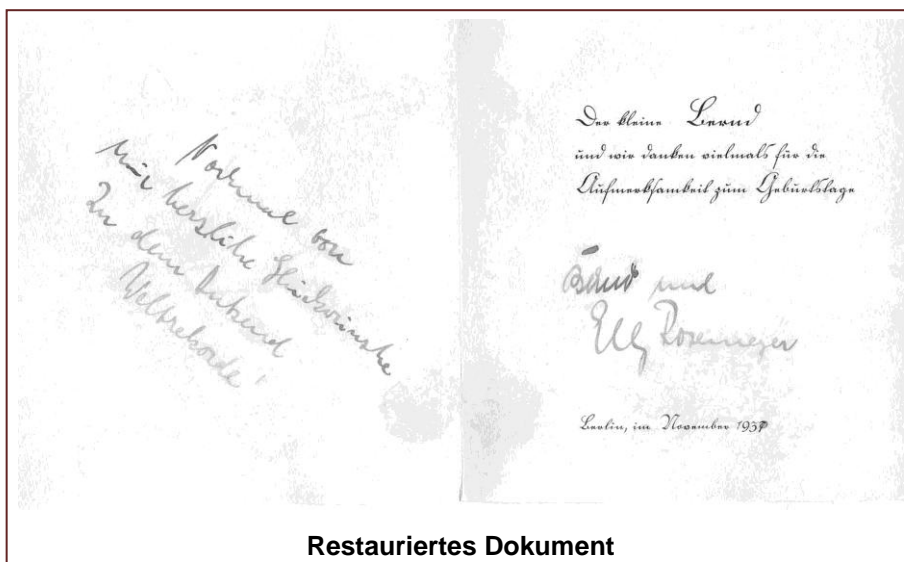 Nochmal von
mir herzliche Glückwünsche
Zu dem Dutzend
Weltrekorde!
Der kleine Bernd
und wir danken vielmals für die
Aufmerksamkeit zum Geburtstage
Bernd und
Elly Rosemeyer
Berlin, im November 1937
Restauriertes Dokument